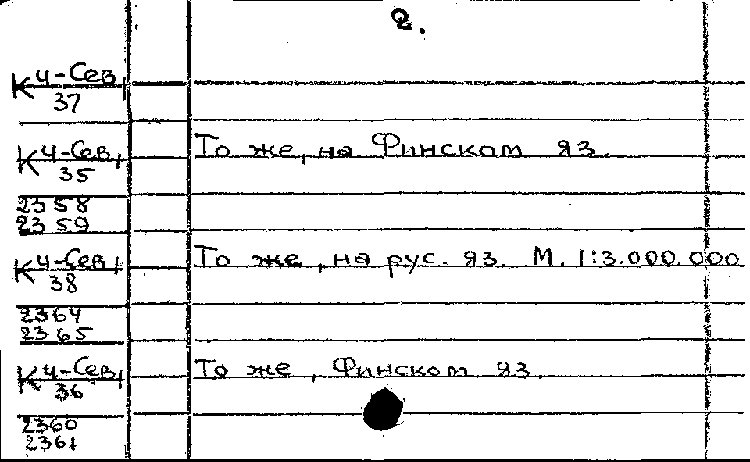 2.
К ч-Сев.
37
К ч-Сев. То же, на Финском яз.
35
2358
2359
К ч-Сев. То же, на рус. яз. М. 1:3.000.000
38
2364
2365
К ч-Сев. То же, Финском яз.
36
2360
2361